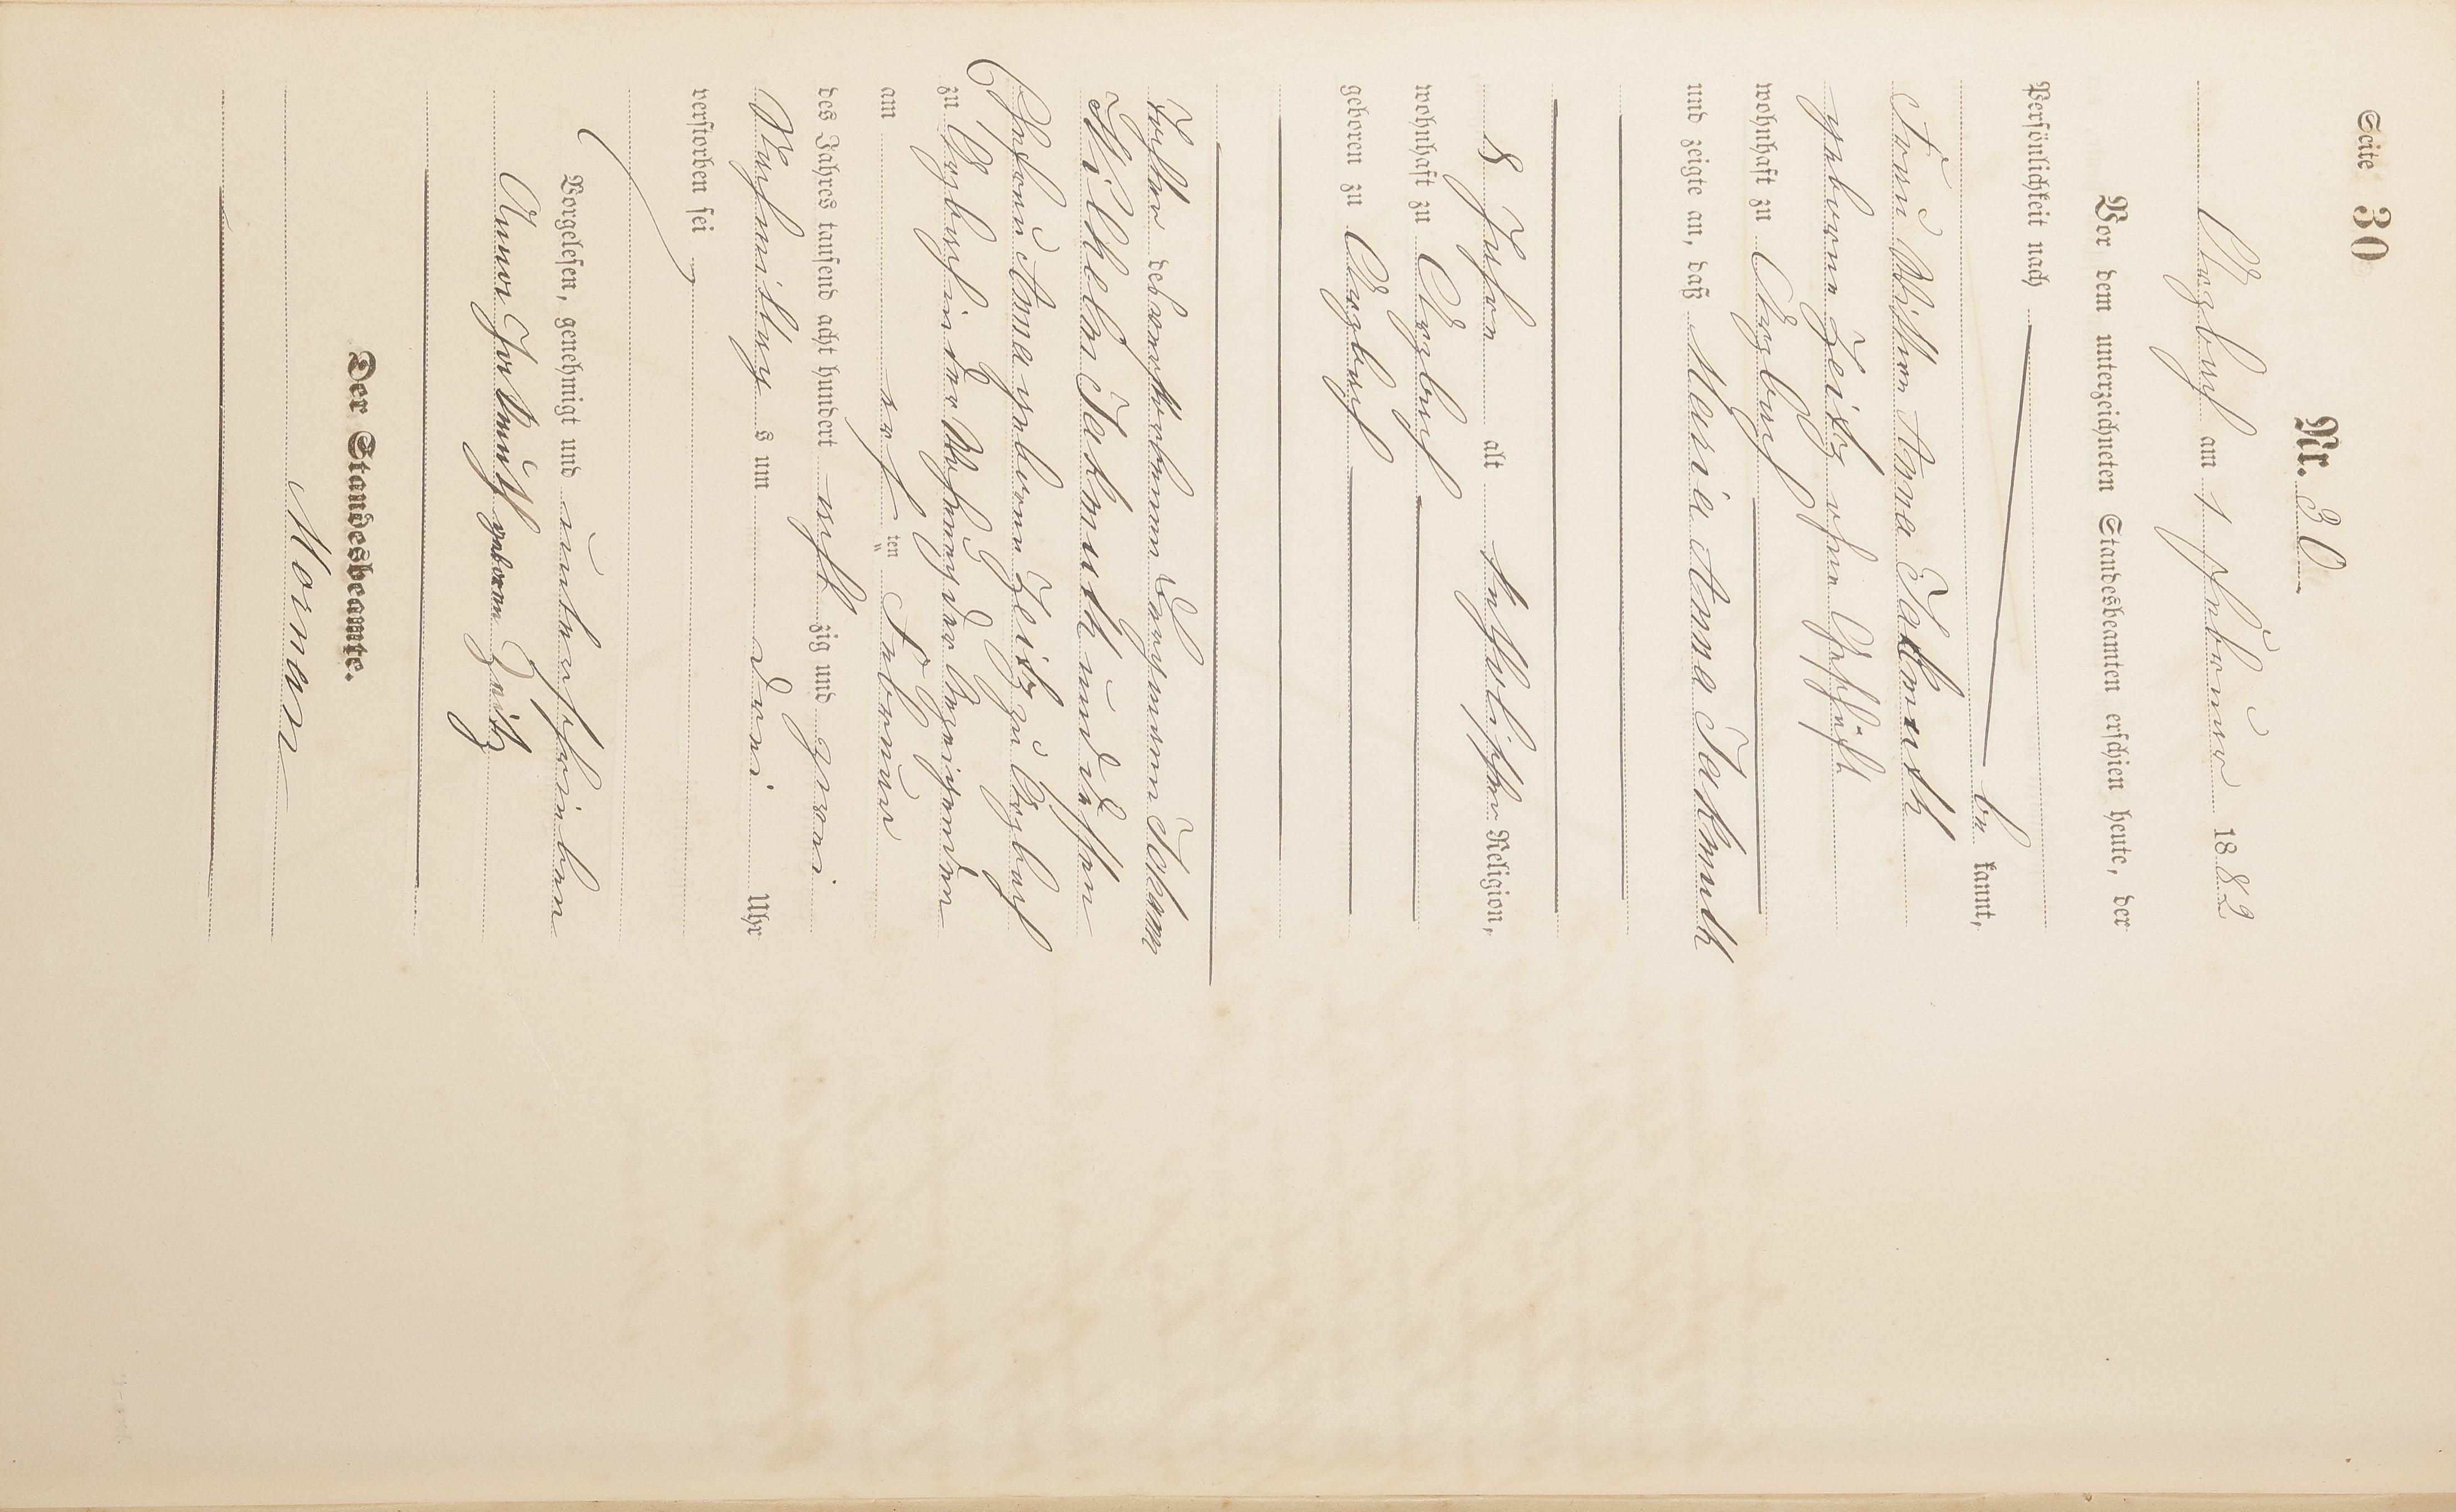 Seite 30
Nr. 30
Arzbach am 1 Februar 1882
Vor dem unterzeichneten Standesbeamten erschien heute, der
Persönlichkeit nach
be kannt,
Frau Wittwe Anna Jakmuth
geborene Zeitz ohne Geschäft
wohnhaft zu Arzbach
und zeigte an, daß Maria Anna Jakmuth
8 Jahre alt katholischer Religion,
wohnhaft zu Arzbach
geboren zu Arzbach
Tochter des verstorbenen Bergmann Johann
Wilhelm Jakmuth und dessen
Ehefrau Anna geborene Zeitz zu Arzbach
zu Arzbach in der Wohnung der Anzeigenden
am ersten Februar
des Jahres tausend acht hundert achtzig und zwei
Nachmittags um drei Uhr
verstorben sei
Vorgelesen, genehmigt und unterschrieben
Anna Jakmuth geborene Zeitz
Der Standesbeamte.